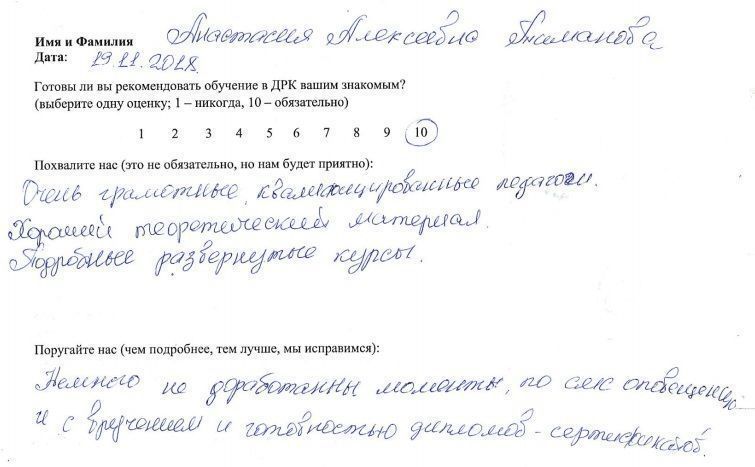 Имя и Фамилия Анастасия Алексеевна
Дата: 19.11.2018.
Готовы ли вы рекомендовать обучение в ДРК вашим знакомым?
(выберите одну оценку; 1 – никогда, 10 – обязательно)
1 2 3 4 5 6 7 8 9 10
Похвалите нас (это не обязательно, но нам будет приятно):
Очень грамотные, квалифицированные педагоги.
Хороший теоретический материал.
Подробные развернутые курсы.
Поругайте нас (чем подробнее, тем лучше, мы исправимся):
Немного не доработанны моменты, по смс оповещению
и с вручением и готовностью дипломов - сертификатов.